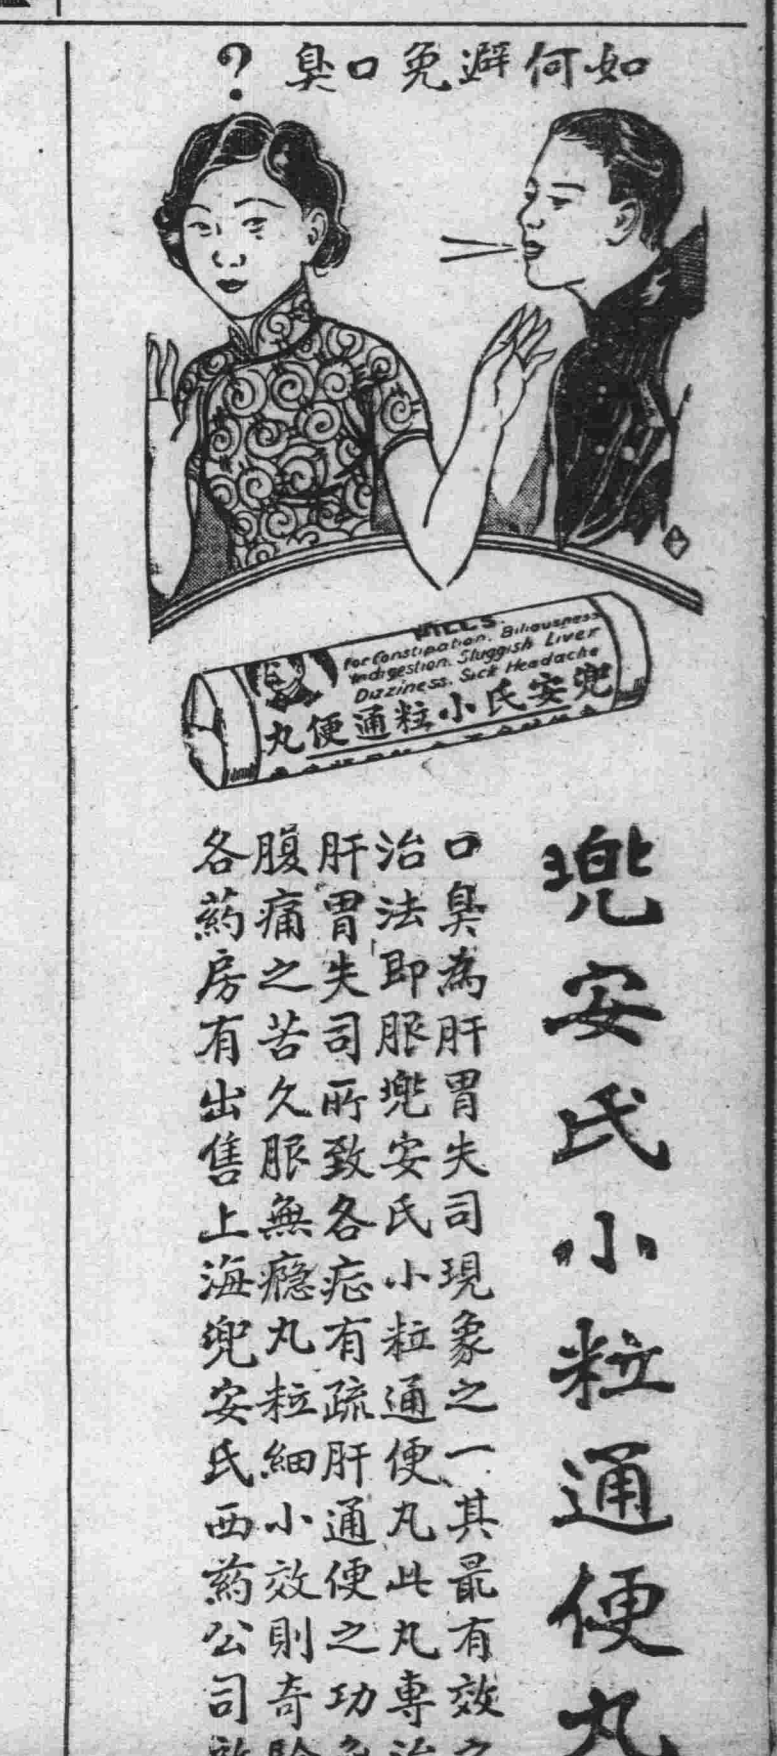 如何避免口臭?
PILLS.
for Constipation. Biliousness
Indigestion. Sluggish Liver
Dizziness. Sick Headache
兜安氏小粒通便丸
兜安氏小粒通便丸
口臭為肝胃失司現象之一其最有效之
治法即服兜安氏小粒通便丸此丸專治
肝胃失司所致各症有疏肝通便之功
腹痛之苦久服無癮丸粒細小效則奇
各葯房有出售上海兜安氏西葯公司